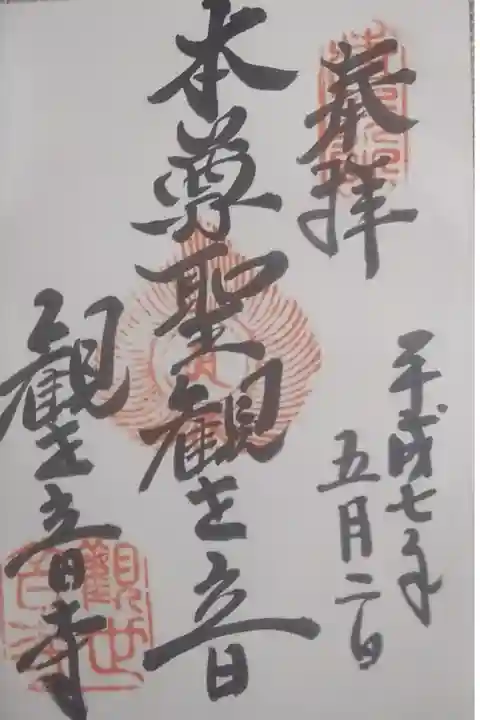 奉拝
平成七年
五月二日
本尊聖観世音
観世音寺